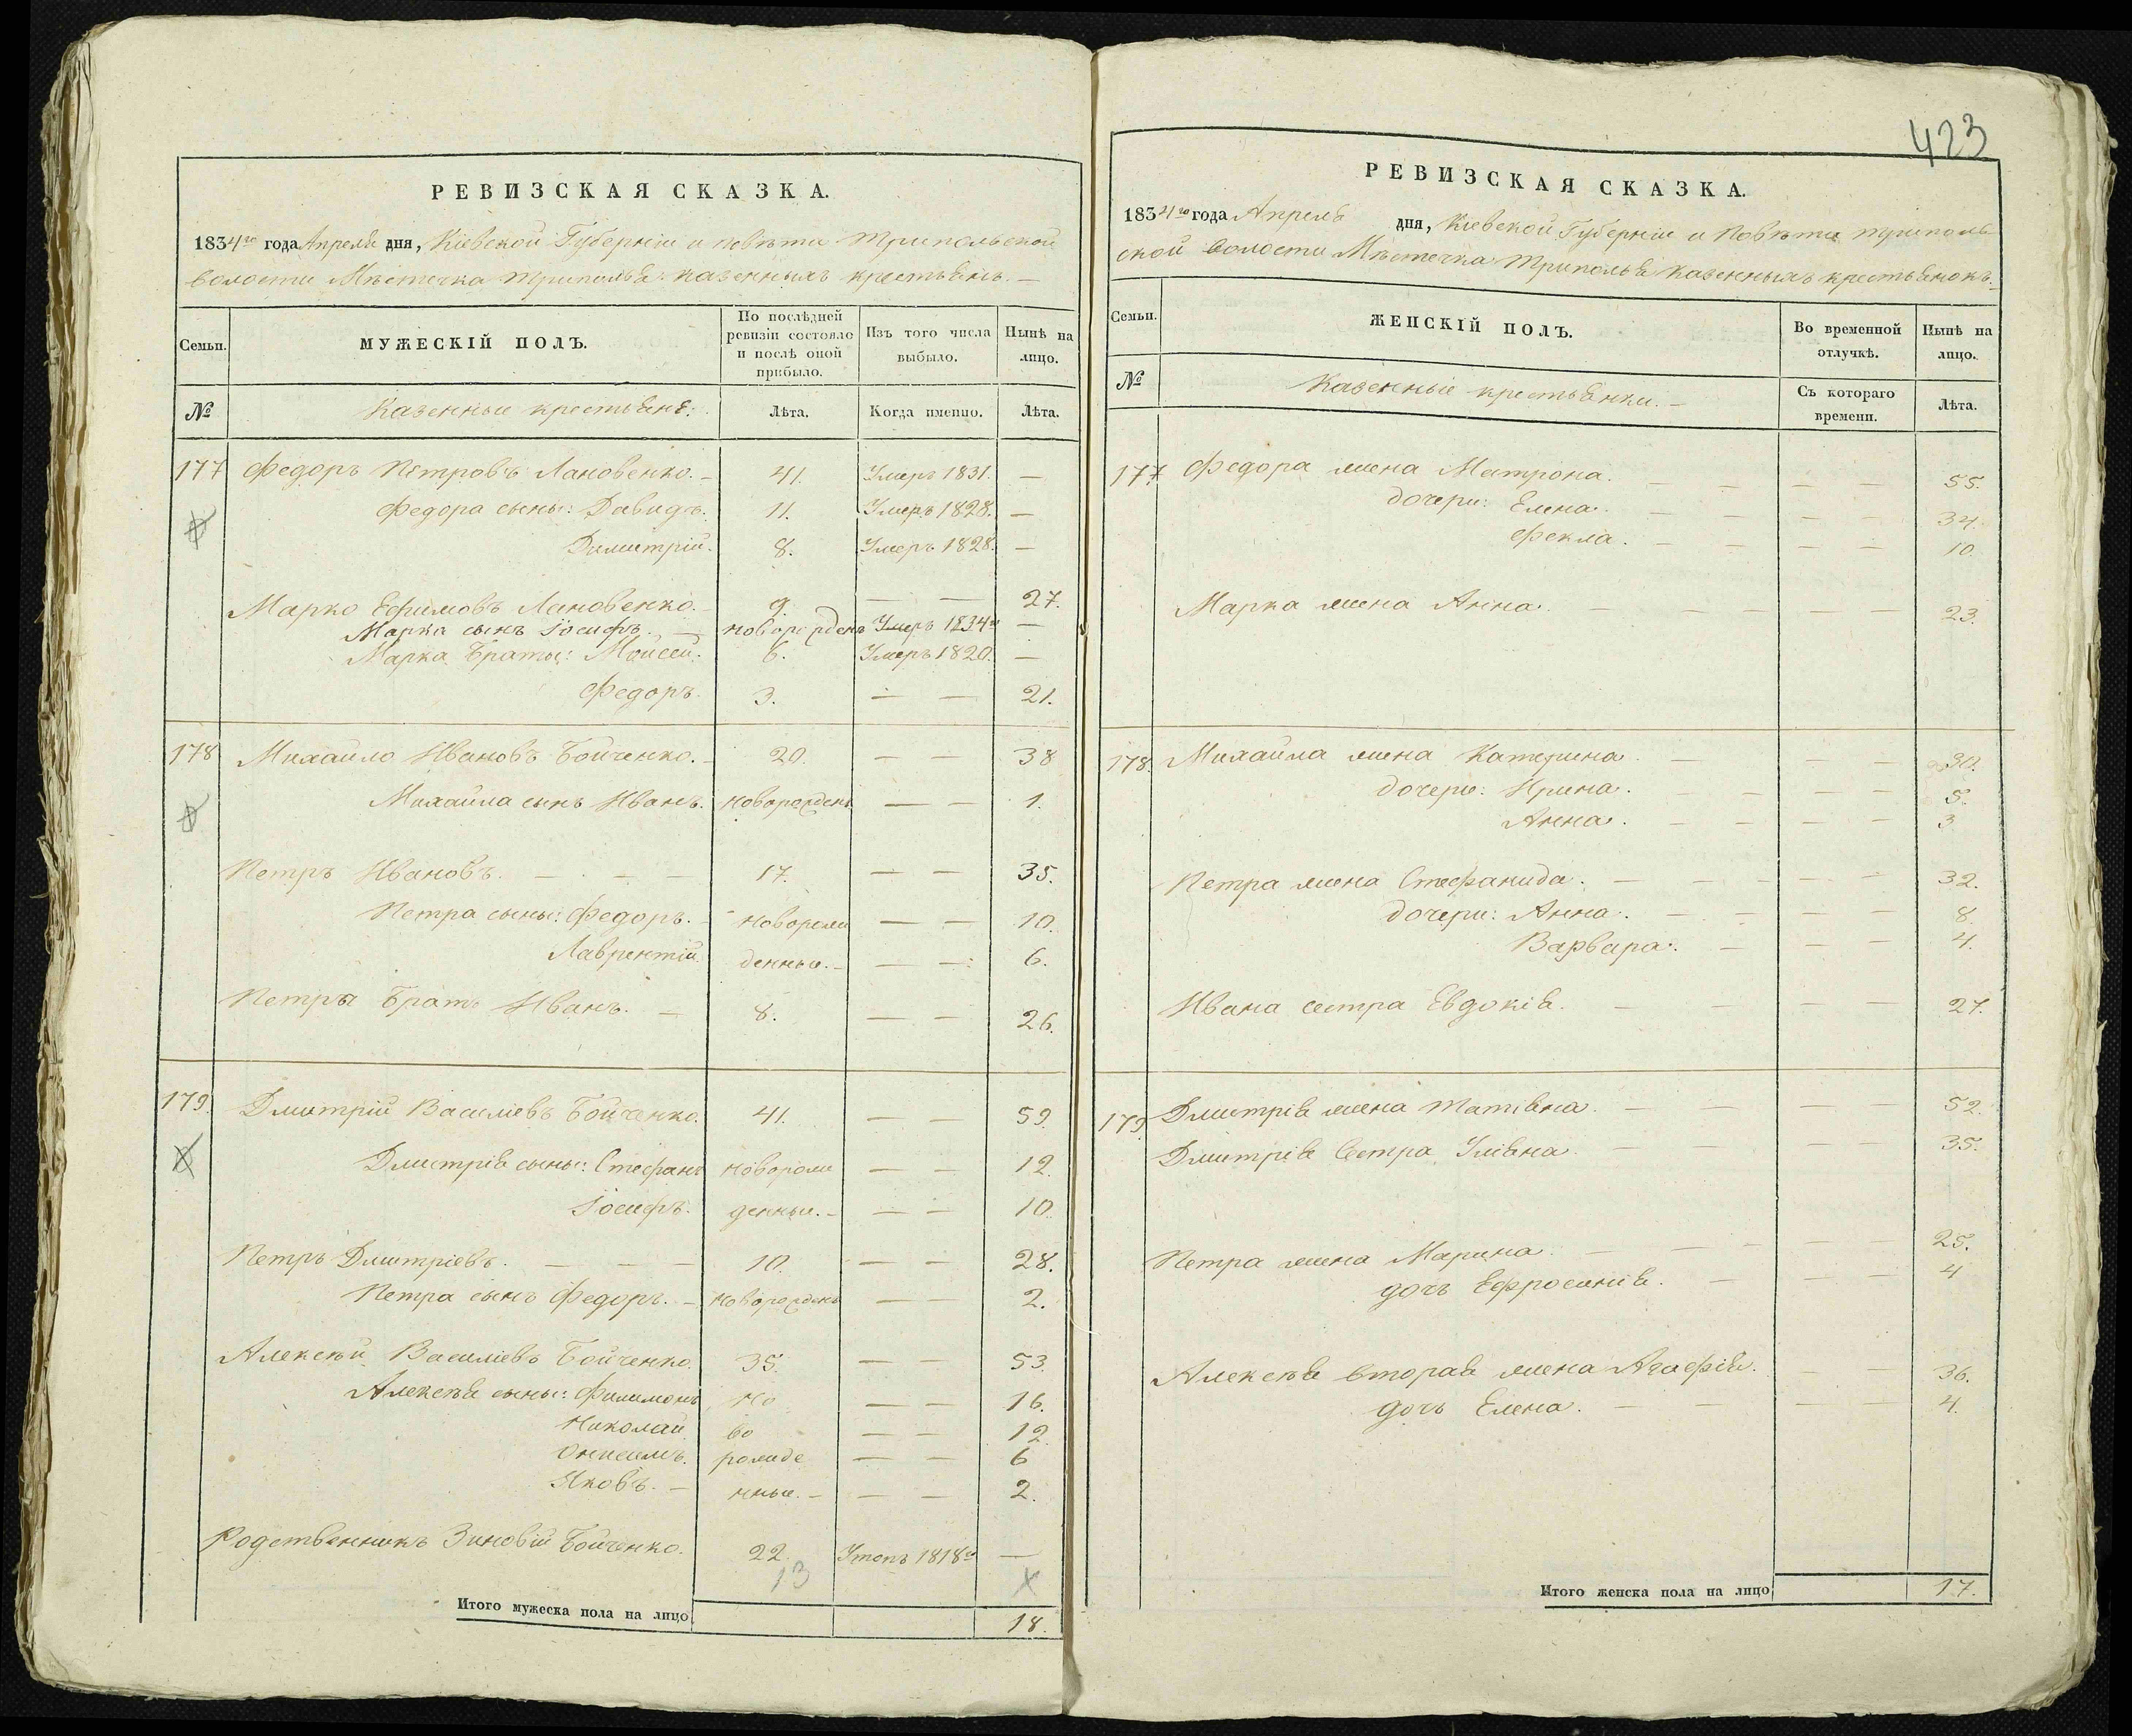 423
РЕВИЗСКАЯ СКАЗКА.
1834го года Апреля дня, Кіевской Губерніи и повѣта Трипольской
волости Мѣстечка Триполья казенныхъ крестьянъ. —
Семьи. МУЖЕСКІЙ ПОЛЪ. По послѣдней ревизіи состояло и послѣ оной прибыло. Изъ того числа выбыло. Нынѣ на лицо.
№ Казенные крестьяне: Лѣта. Когда именно. Лѣта.
177 Федоръ Петровъ Лановенко. — 41. Умеръ 1831. —
Федора сыны: Давидъ. 11. Умеръ 1828. —
Димитрій. 8. Умеръ 1828. —
Марко Ефимовъ Лановенко. — 9. — — 27.
Марка сынъ Іосифъ. — новорожденъ Умеръ 1834го —
Марка Братья: Мойсей. 6. Умеръ 1820. —
Федоръ. 3. — — 21.
178 Михайло Ивановъ Бойченко. — 20. — — 38
Михайла сынъ Иванъ. новорожденъ — — 1.
Петръ Ивановъ. — — — 17. — — 35.
Петра сыны: Федоръ. — новорож — — 10.
Лаврентій. денные. — — — 6.
Петра Братъ Иванъ. — 8. — — 26.
179. Дмитрій Василіевъ Бойченко. 41. — — 59.
Дмитрія сыны: Стефанъ новорож — — 12.
Іосифъ. денные. — — — 10.
Петръ Дмитріевъ. — — — 10. — — 28.
Петра сынъ Федоръ. — новорожденъ — — 2.
Алексѣй Василіевъ Бойченко. 35. — — 53.
Алексѣя сыны: Филимонъ но — — 16.
Николай. во — — 12.
Онисимъ. рожде — — 6
Яковъ. — нные. — — — 2.
Родственникъ Зиновій Бойченко. 22. Утопъ 1818го —
13 х
Итого мужеска пола на лицо 18.
РЕВИЗСКАЯ СКАЗКА.
1834го года Апреля дня, Кіевской Губерніи и Повѣта Триполь
ской волости Мѣстечка Триполья казенныхъ крестьянокъ. —
Семьи. ЖЕНСКІЙ ПОЛЪ. Во временной отлучкѣ. Нынѣ на лицо.
№ Казенные крестьянки. — Съ котораго времени. Лѣта.
177 Федора жена Матрона. — — — — 55.
дочери: Елена. — — — — 34.
Фекла. — — — — 10.
Марка жена Анна. — — — — — 23.
178. Михайла жена Катерина. — — — 30.
дочери: Ирина. — — — — 5.
Анна. — — — — 3
Петра жена Стефанида. — — — — — 32.
дочери: Анна. — — — — 8.
Варвара. — — — 4.
Ивана сестра Евдокія. — — — — 27.
179. Дмитрія жена Татіяна. — — — — 52.
Дмитрія Сестра Уліяна. — — — 35.
Петра жена Марина. — — — — — 25.
дочь Ефросинія. — — — 4
Алексѣя вторая жена Агафія. — — 36.
дочь Елена. — — — — 4.
Итого женска пола на лицо 17.